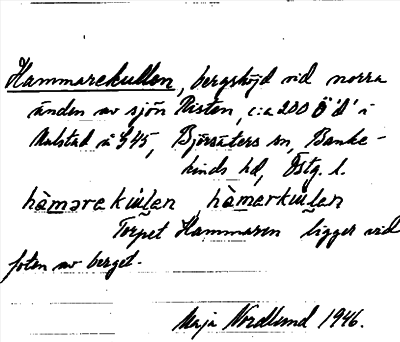 Hammarekullen, bergshöjd vid norra
änden av sjön Risten, c:a 200 Ö 'd' i
å S 45, Björsäters sn, Banke-
kinds hd, Östg. l.
hàmarekulen hàmerkulen
Torpet Hammaren ligger vid
foten av berget.
Maja Nordlund 1946.